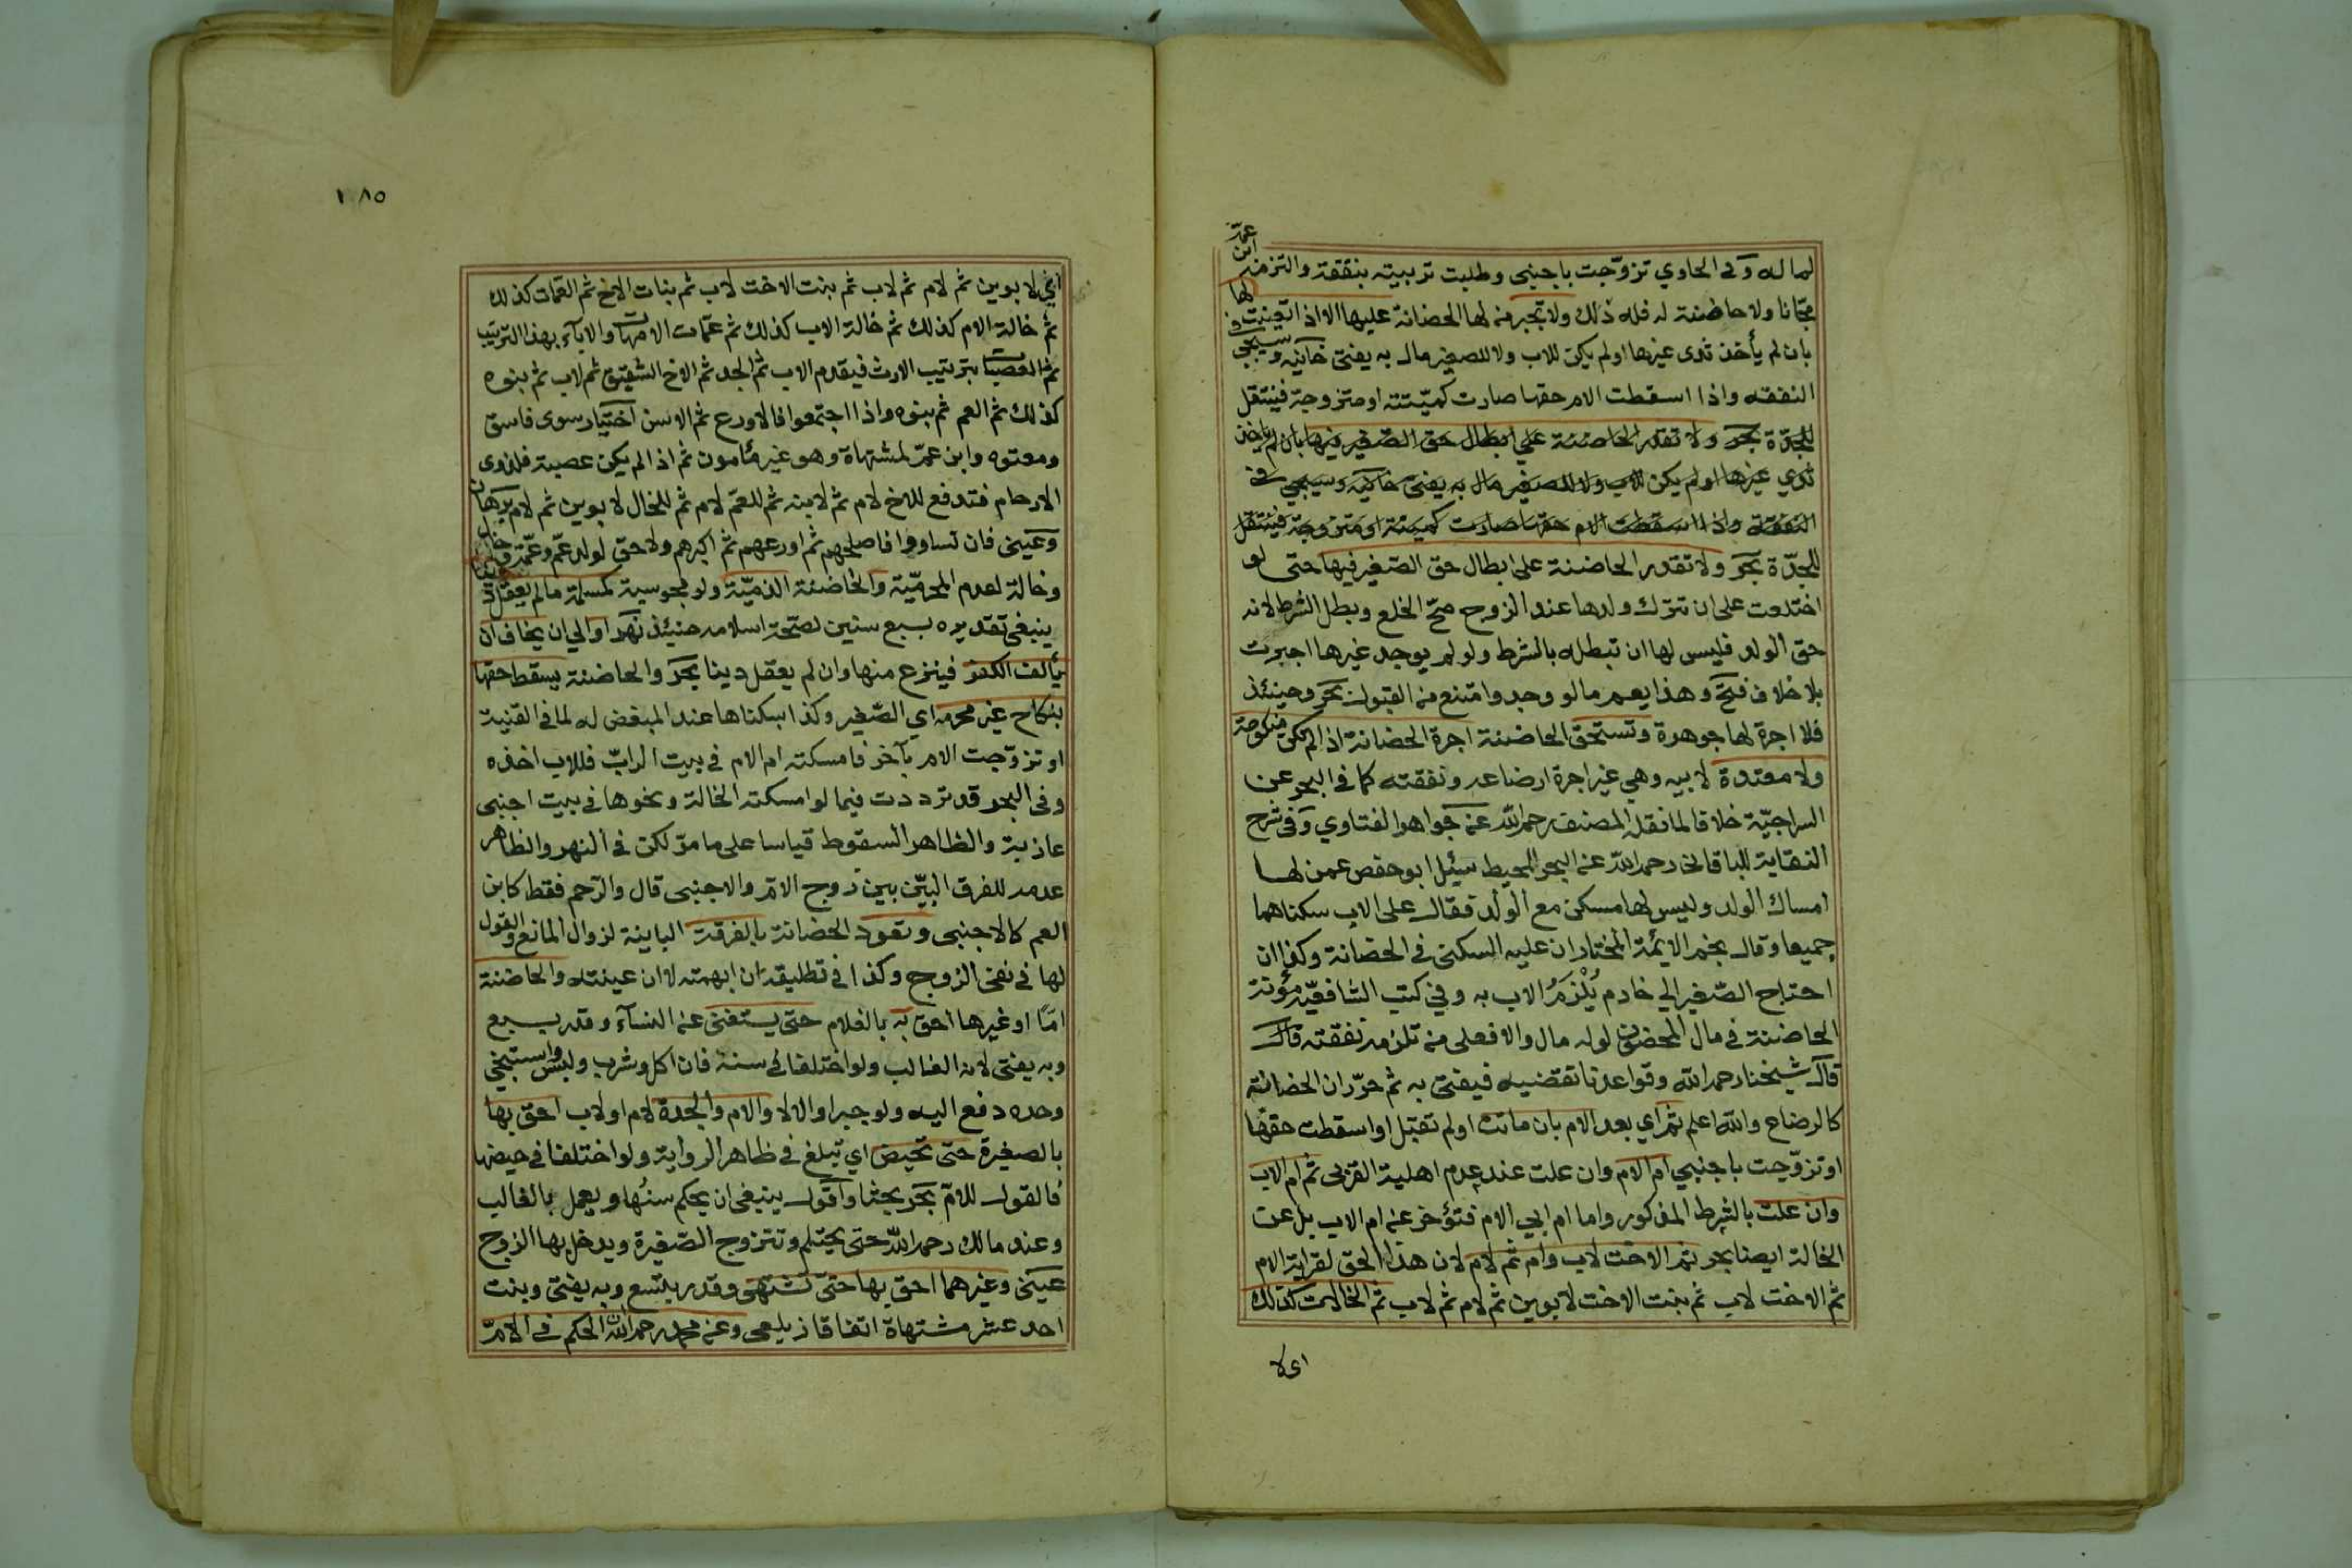 لما له وفى الحاوي تزوّجت باجنبى وطلبت تربيته بنفقة والتزمه ابن عمّه
مجّانا ولا حاضنة له فله ذلك ولا تجبر من لها الحضانة عليها الا اذا تعينت لها
بان لم يأخذ ثدى غيرها او لم يكن للاب ولا للصغير مال به يفتى خانيه وسيجى في
النفقه واذا اسقطت الام حقها صارت كميّتة او متزوجة فينتقل
للجدّة بحر ولا تقدر الحاضنة علي ابطال حق الصّغير فيها بان لم ياخذ
ثدي غيرها او لم يكن للاب ولا للصغير مال به يفتى خانيه وسيجي في
النفقة واذا اسقطت الام حقها صارت كميتة او متزوجة فينتقل
للجدّة بحر ولا تقدر الحاضنة على ابطال حق الصّغير فيها حتى لو
اختلعت على ان تترك ولدها عند الزوج صحّ الخلع وبطل الشرط لانه
حق الولد فليس لها ان تبطله بالشرط ولو لم يوجد غيرها اجبرت
بلا خلاف فتح وهذا يعم ما لو وجد وامتنع من القبول بحر وحينئذ
فلا اجرة لها جوهرة وتستحق الحاضنة اجرة الحضانة اذا لم تكن منكوحة
ولا معتدة لابيه وهي غير اجرة ارضاعه ونفقته كما في البحر عن
السراجيّة خلافا لما نقله المصنف رحمه الله عن جواهر الفتاوي وفى شرح
النقاية للباقاني رحمه الله عن البحر المحيط سئل ابو حفص عمن لها
امساك الولد وليس لها مسكن مع الولد فقال على الاب سكناهما
جميعا وقال نجم الائمة المختار ان عليه السكنى في الحضانة وكذا ان
احتاج الصّغير الي خادم يُلْزَمُ الاب به وفي كتب الشافعيّة مؤنة
الحاضنة في مال المحضون لو له مال والا فعلى من تلزمه نفقته قال
قال شيخنا رحمه الله وقواعدنا تقتضيه فيفتى به ثم حرّر ان الحضانة
كالرضاع والله اعلم ثم اي بعد الام بان ماتت او لم تقبل او اسقطت حقها
او تزوّجت باجنبي ام الام وان علت عند عدم اهلية القربى ثم ام الاب
وان علت بالشرط المذكور واما ام ابي الام فتؤخر عن ام الاب بل عن
الخالة ايضا بحر ثم الاخت لاب وام ثم لام لان هذا الحق لقرابة الام
ثم الاخت لاب ثم بنت الاخت لابوين ثم لام ثم لاب ثم الخالات كذلك
اى لا
١٨٥
اي لابوين ثم لام ثم لاب ثم بنت الاخت لاب ثم بنات الاخ ثم العمّات كذلك
ثم خالة الام كذلك ثم خالة الاب كذلك ثم عمّات الامهات والابآء بهذا الترتيب
ثم العصبات بترتيب الارث فيقدم الاب ثم الجد ثم الاخ الشقيق ثم لاب ثم بنوه
كذلك ثم العم ثم بنوه واذا اجتمعوا فالاورع ثم الاسن اختيار سوى فاسق
ومعتوه وابن عمّ لمشتهاة وهو غير مأمون ثم اذا لم يكن عصبة فلذوى
الارحام فتدفع للاخ لام ثم لابنه ثم للعمّ لام ثم للخال لابوين ثم لام برهان
وعينى فان تساووا فاصلحهم ثم اورعهم ثم اكبرهم ولا حق لولد عمّ وعمّة وخال
وخالة لعدم المحرميّة والحاضنة الذميّة ولو مجوسية كمسلمة ما لم يعقل دينا
ينبغى تقديره بسبع سنين لصحّة اسلامه حينئذ نهر او الي ان يخاف ان
يألف الكفر فينزع منها وان لم يعقل دينا بحر والحاضنة يسقط حقها
بنكاح غير محرمه اي الصّغير وكذا بسكناها عند المبغض له لما فى القنية
او تزوّجت الام بآخر فامسكته ام الام فى بيت الرابّ فللاب اخذه
وفى البحر قد ترددت فيما لو امسكته الخالة ونحوها فى بيت اجنبى
عازبة والظاهر السقوط قياسا على ما مرّ لكن فى النهر والظاهر
عدمه للفرق البيّن بين زوج الامّ والاجنبى قال والرّحم فقط كابن
العم كالاجنبى وتعود الحضانة بالفرقة الباينة لزوال المانع والقول
لها فى نفى الزوج وكذا فى تطليقه ان ابهمته لا ان عينته والحاضنة
امّا او غيرها احق به بالغلام حتى يستغنى عن النسآء وقدر بسبع
وبه يفتى لانه الغالب ولو اختلفا في سنة فان اكل وشرب ولبس واستنجى
وحده دفع اليه ولو جبرا والا لا والام والجدة لام او لاب احق بها
بالصغيرة حتى تحيض اي تبلغ فى ظاهر الرواية ولو اختلفا فى حيضها
فالقول للامّ بحر بحثا واقول ينبغى ان يحكم سنُها ويعمل بالغالب
وعند مالك رحمه الله حتى يحتلم وتتزوج الصّغيرة ويدخل بها الزوج
عينى وغيرهما احق بها حتى تشتهى وقدر بتسع وبه يفتى وبنت
احدى عشر مشتهاة اتفاقا زيلعى وعن محمد رحمه الله ان الحكم فى الامّ